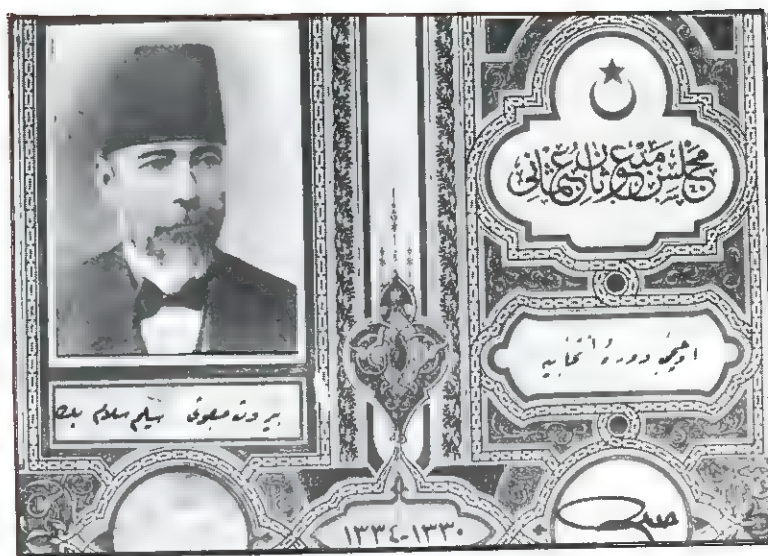 مجلس مبعوثان عثمانی
اوچنجی دورهٔ انتخابیه
بیروت مبعوثی سلیم سلام بك
١٣٣٠-١٣٣٤